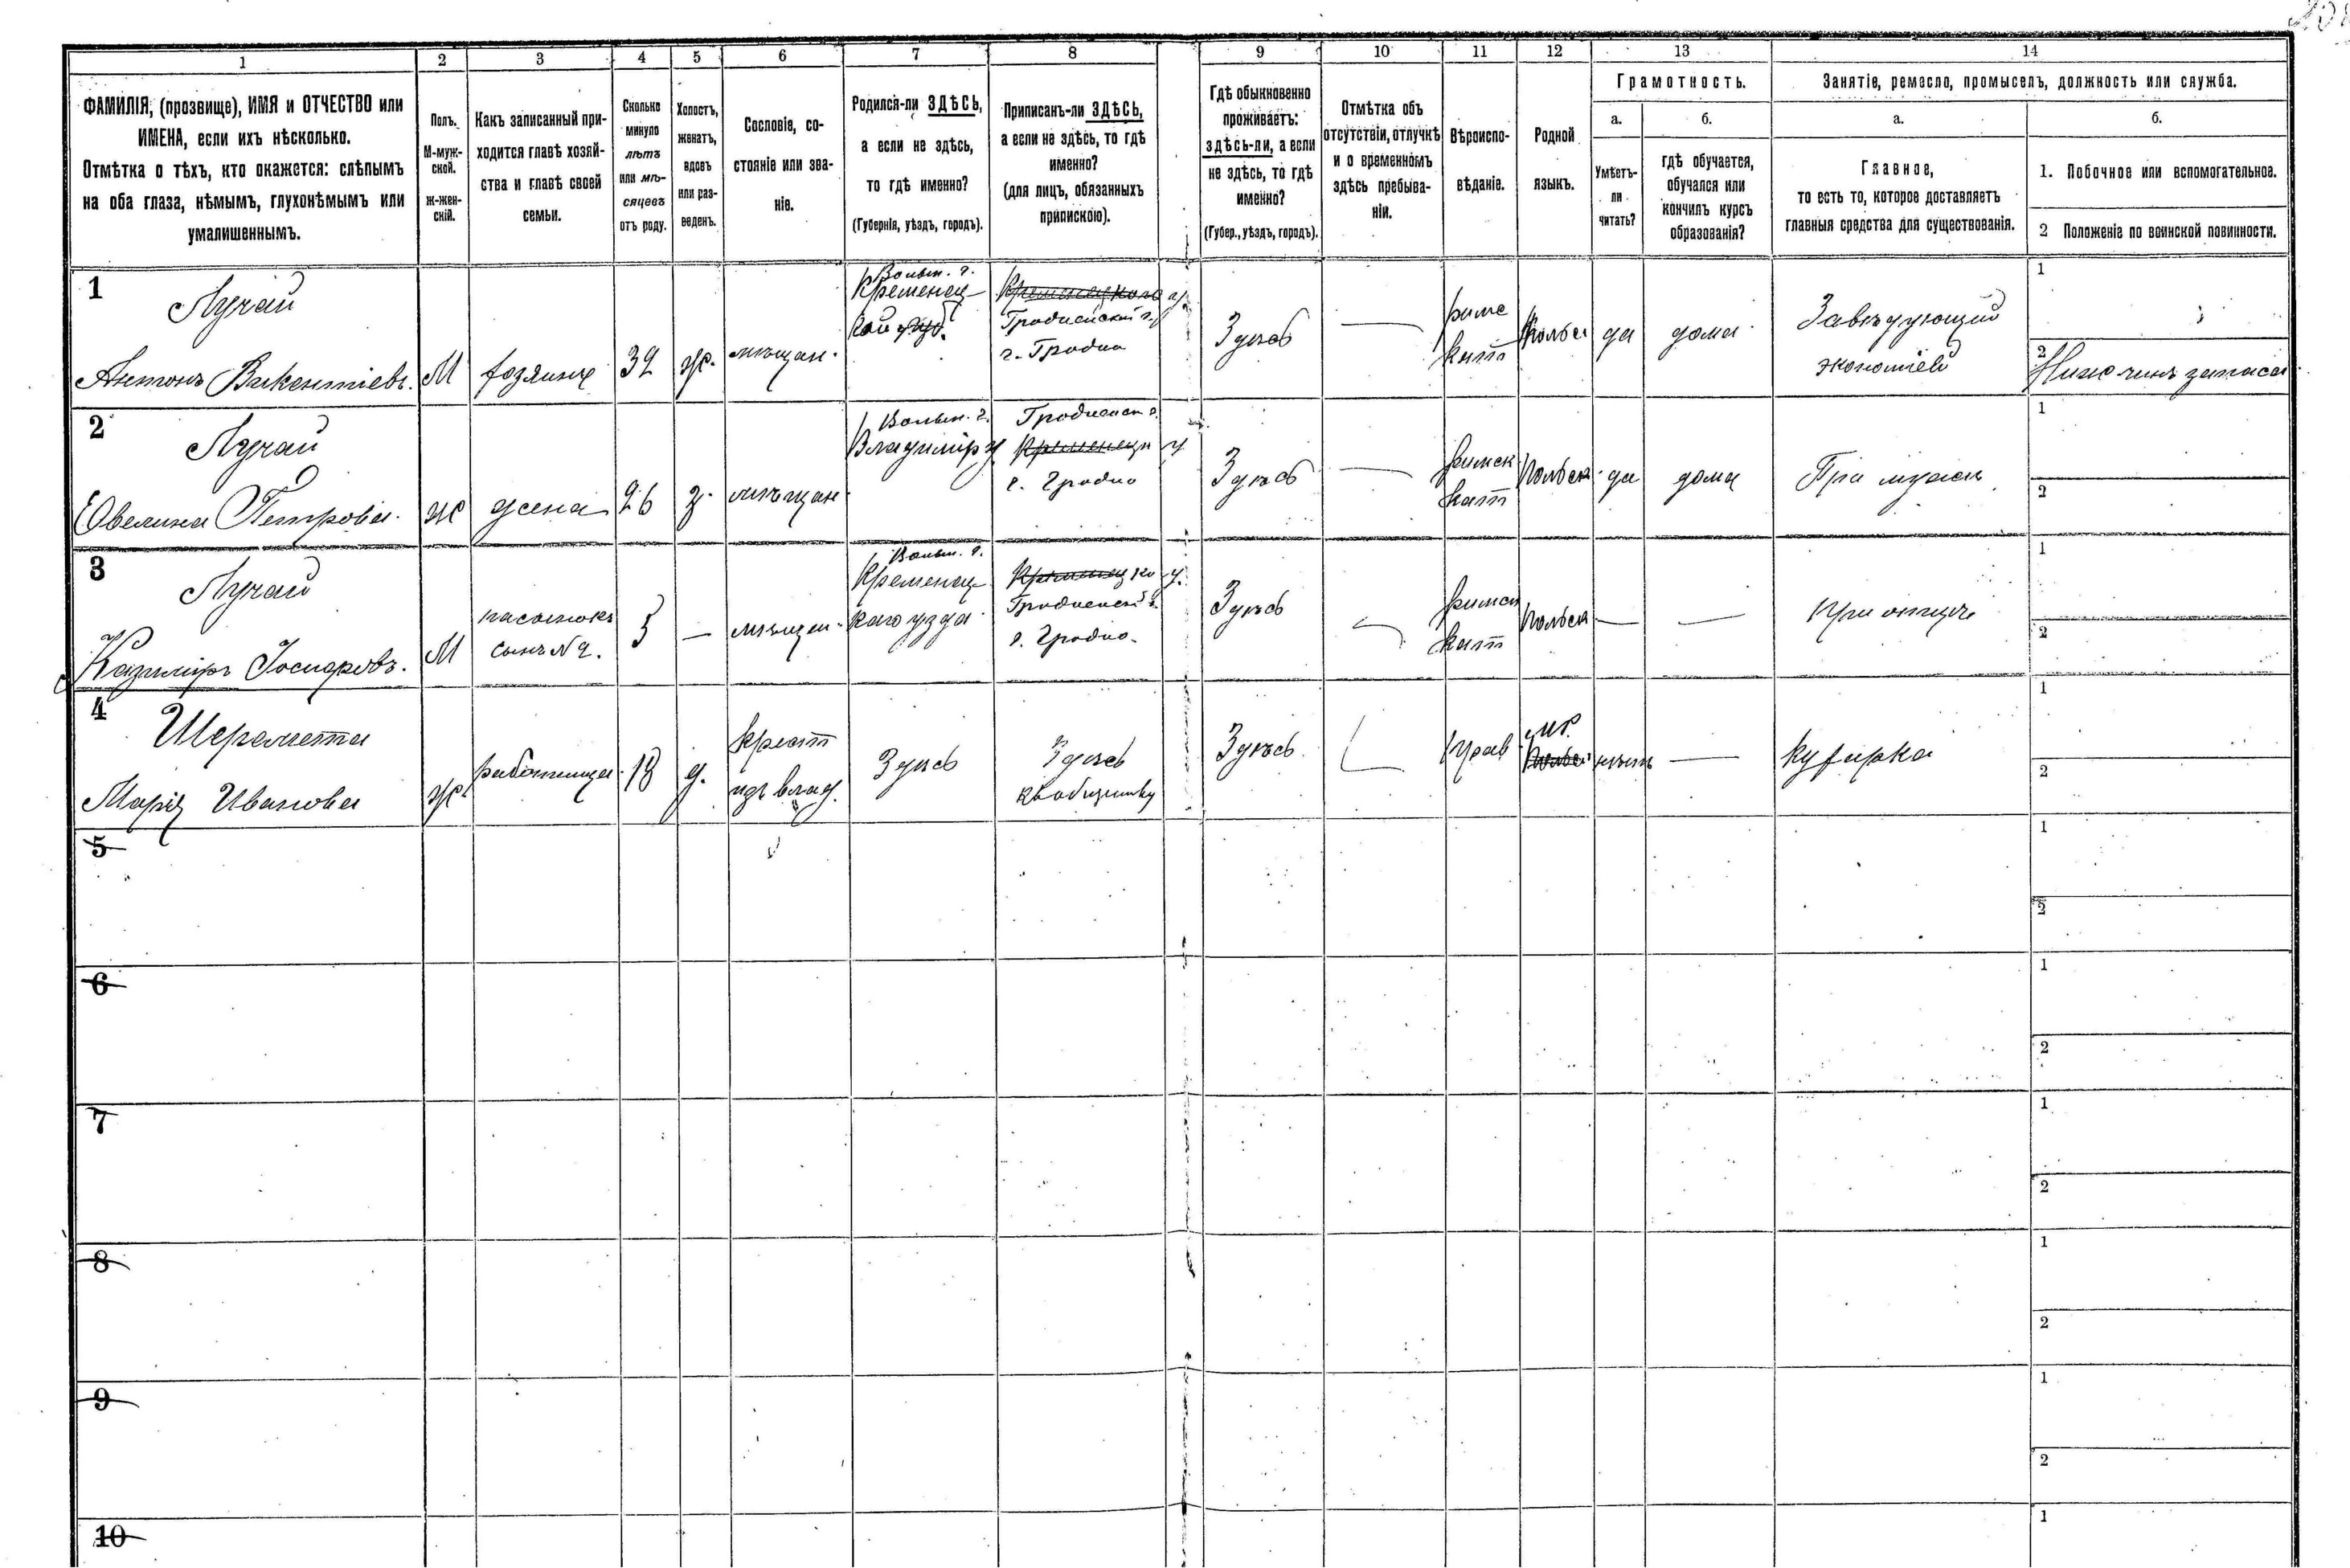 1 2 3 4 5 6 7 8 9 10 11 12 13 14
ФАМИЛІЯ, (прозвище), ИМЯ и ОТЧЕСТВО или
ИМЕНА, если ихъ нѣсколько.
Отмѣтка о тѣхъ, кто окажется: слѣпымъ
на оба глаза, нѣмымъ, глухонѣмымъ или
умалишеннымъ.
Полъ.
М-муж-
ской.
ж-жен-
скій.
Какъ записанный при-
ходится главѣ хозяй-
ства и главѣ своей
семьи.
Сколько
минуло
лѣтъ
или мѣ-
сяцевъ
отъ роду.
Холостъ,
женатъ,
вдовъ
или раз-
веденъ.
Сословіе, со-
стояніе или зва-
ніе.
Родился-ли ЗДѢСЬ,
а если не здѣсь,
то гдѣ именно?
(Губернія, уѣздъ, городъ).
Приписанъ-ли ЗДѢСЬ,
а если не здѣсь, то гдѣ
именно?
(для лицъ, обязанныхъ
припискою).
Гдѣ обыкновенно
проживаетъ:
здѣсь-ли, а если
не здѣсь, то гдѣ
именно?
(Губер., уѣздъ, городъ).
Отмѣтка объ
отсутствіи, отлучкѣ
и о временномъ
здѣсь пребыва-
ніи.
Вѣроиспо-
вѣданіе.
Родной
языкъ.
Грамотность.
а.
Умѣетъ-
ли
читать?
б.
гдѣ обучается,
обучался или
кончилъ курсъ
образованія?
Занятіе, ремесло, промыселъ, должность или служба.
а.
Главное,
то есть то, которое доставляетъ
главныя средства для существованія.
б.
1. Побочное или вспомогательное.
2 Положеніе по воинской повинности.
1
Лучай
Антонъ Викентіевъ.
М
хозяинъ
32
ж.
мѣщан.
Волын. г.
Кременец-
Кременецкого у.
Гродненской г.
г. Гродно
Здѣсь
—
римс
кат
Польск
да
дома
Завѣдующій
экономіей
1
2
Ниж. чинъ запаса
2
Лучай
Эвелина Петрова.
ж
жена
26
з.
мѣщан.
Волын. г.
Владимір у
Гродненск г.
Кременецк у
г. Гродно
Здѣсь
—
римск
кат
Польск
да
дома
При мужѣ
1
2
3
Лучай
Казиміръ
М
пасынокъ
сынъ №2.
5
—
мѣщан.
Волын. г.
Кременец-
каго уѣзда
Кременецко у.
Гродненской г.
г. Гродно.
Здѣсь
—
римск
кат
Польск
—
—
при отцѣ
1
2
4
Шеремета
Марія Иванова
ж.
работница
18
д.
крест
изъ влад.
Здѣсь
Здѣсь
Здѣсь
Прав
м.р.
Польск
нѣтъ
—
кухарка
1
2
5
1
2
6
1
2
7
1
2
8
1
2
9
1
2
10
1